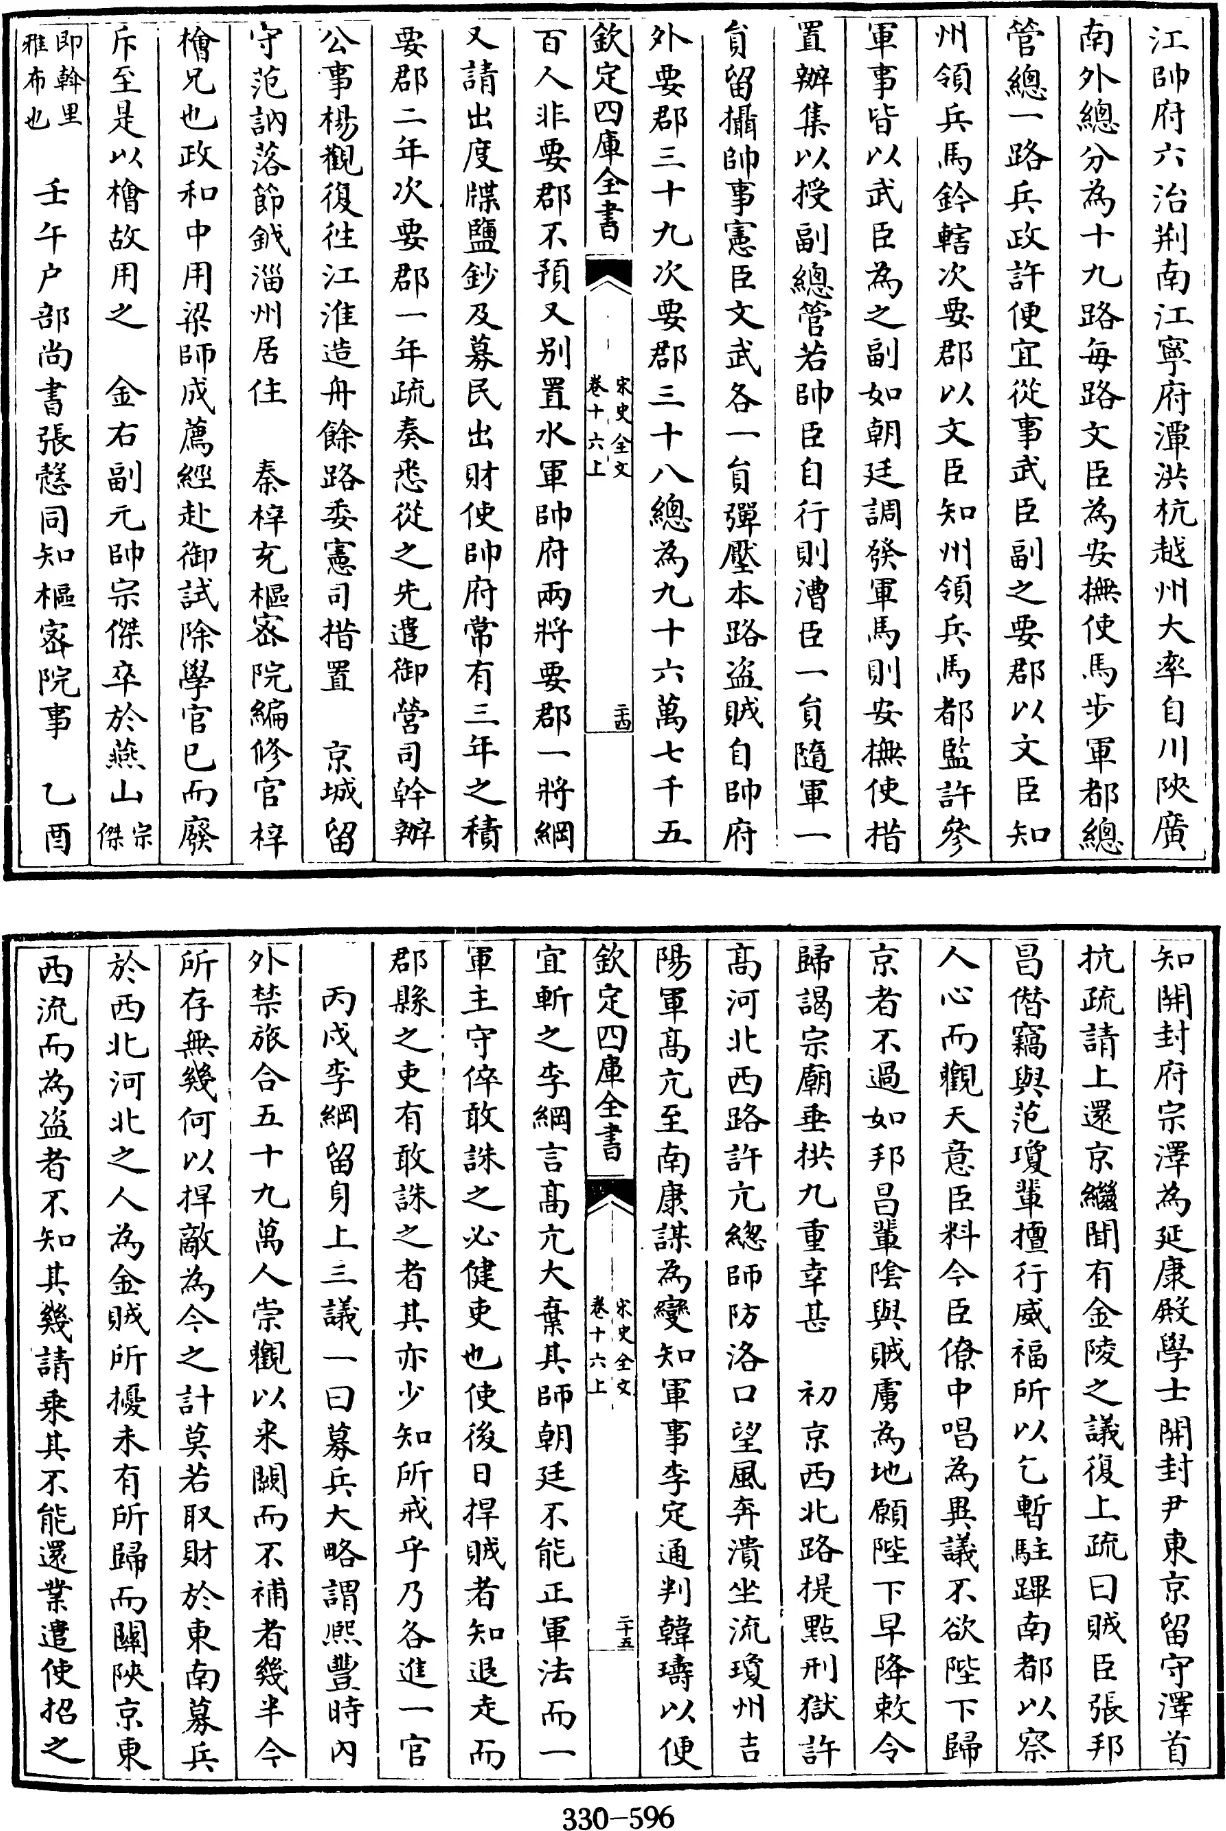 江帥府六治荆南江寧府潭洪杭越州大率自川陜廣
南外總分為十九路每路文臣為安撫使馬步軍都總
管總一路兵政許便宜從事武臣副之要郡以文臣知
州領兵馬鈐轄次要郡以文臣知州領兵馬都監許參
軍事皆以武臣為之副如朝廷調發軍馬則安撫使措
置辦集以授副總管若帥臣自行則漕臣一員隨軍一
員留攝帥事憲臣文武各一員彈壓本路盜賊自帥府
外要郡三十九次要郡三十八總為九十六萬七千五
欽定四庫全書
宋史全文
卷十六上
二十四
百人非要郡不預又别置水軍帥府兩將要郡一將綱
又請出度牒鹽鈔及募民出財使帥府常有三年之積
要郡二年次要郡一年疏奏悉從之先遣御營司幹辦
公事楊觀復往江淮造舟餘路委憲司措置　京城留
守范訥落節鉞淄州居住　秦梓充樞密院編修官梓
檜兄也政和中用梁師成薦經赴御試除學官巳而廢
斥至是以檜故用之　金右副元帥宗傑卒於燕山宗傑
即斡里雅布也　壬午户部尚書張慤同知樞密院事　乙酉
知開封府宗澤為延康殿學士開封尹東京留守澤首
抗疏請上還京繼聞有金陵之議復上疏曰賊臣張邦
昌僣竊與范瓊輩擅行威福所以乞暫駐蹕南都以察
人心而觀天意臣料今臣僚中唱為異議不欲陛下歸
京者不過如邦昌輩陰與賊虜為地願陛下早降敕令
歸謁宗廟垂拱九重幸甚　初京西北路提點刑獄許
高河北西路許亢總師防洛口望風奔潰坐流瓊州吉
陽軍高亢至南康謀為變知軍事李定通判韓璹以便
欽定四庫全書
宋史全文
卷十六上
二十五
宜斬之李綱言高亢大棄其師朝廷不能正軍法而一
軍主守倅敢誅之必健吏也使後日捍賊者知退走而
郡縣之吏有敢誅之者其亦少知所戒乎乃各進一官
丙戌李綱留身上三議一曰募兵大略謂熙豐時内
外禁旅合五十九萬人崇觀以来闕而不補者幾半今
所存無幾何以捍敵為今之計莫若取財於東南募兵
於西北河北之人為金賊所擾未有所歸而關陜京東
西流而為盗者不知其幾請乗其不能還業遣使招之
330-596